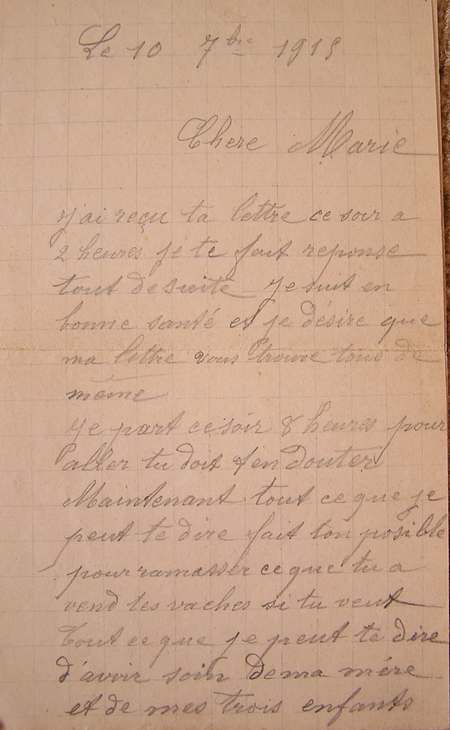 Le 10 7bre 1915
Chere Marie
j'ai reçu ta lettre ce soir a
2 heures je te fait reponse
tout de suite je suit en
bonne santé et je désire que
ma lettre vous trouve tous de
même
Je part ce soir 8 heures pour
aller tu doit t'en douter
Maintenant tout ce que je
peut te dire fait ton posible
pour ramasser ce que tu a
vend tes vaches si tu veut
Tout ce que je peut te dire
d'avoir soin de ma mére
et de mes trois enfants